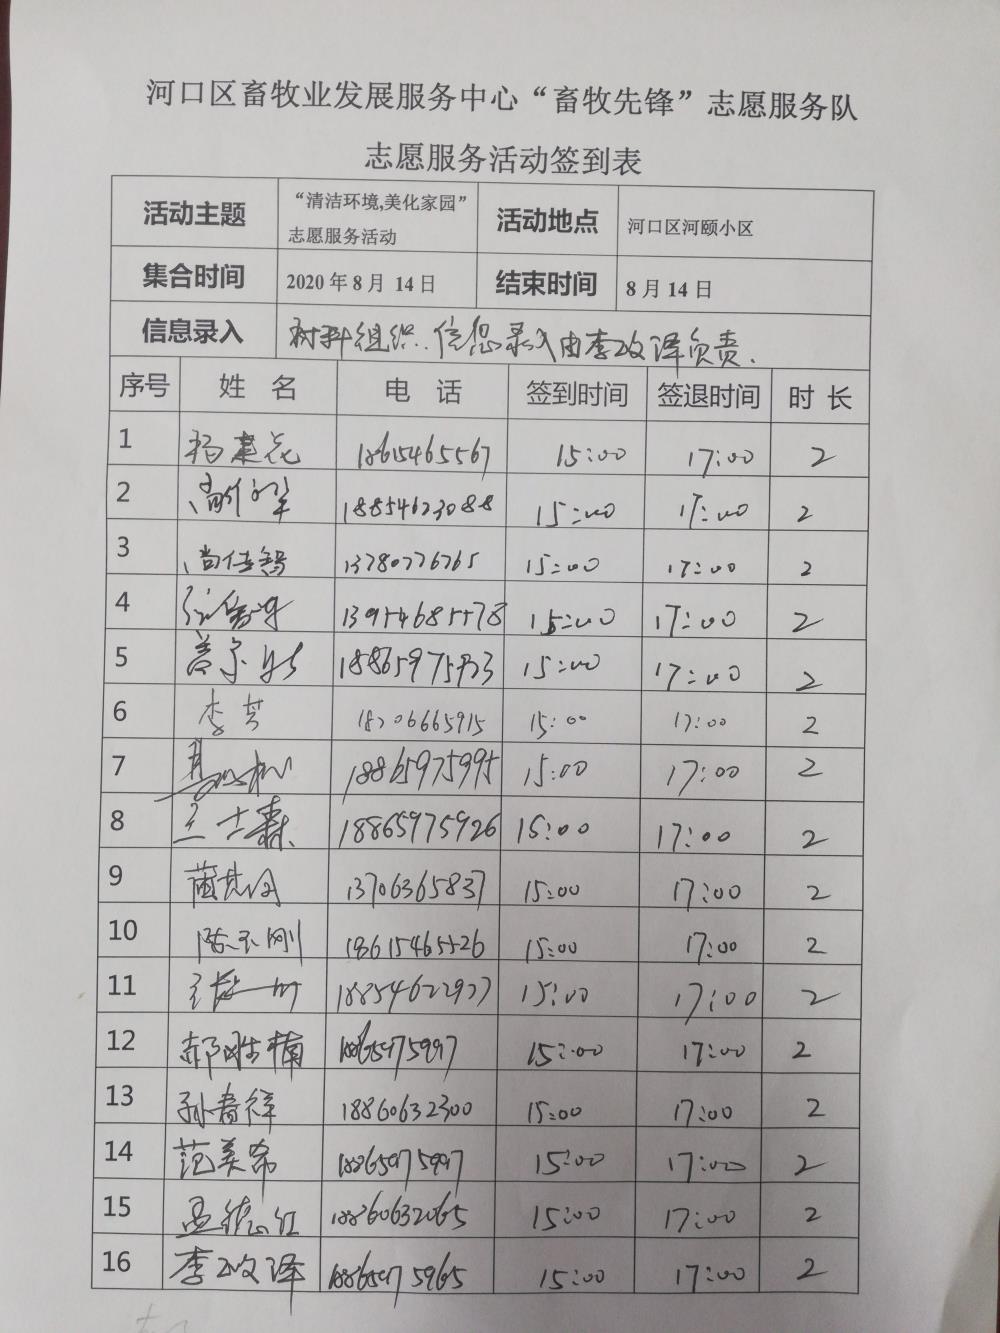 河口区畜牧业发展服务中心“畜牧先锋”志愿服务队
志愿服务活动签到表
活动主题 “清洁环境,美化家园” 志愿服务活动 活动地点 河口区河颐小区
集合时间 2020 年 8 月 14 日 结束时间 8 月 14 日
信息录入 材料组织.信息录入由李政泽负责.
序号 姓 名 电 话 签到时间 签退时间 时 长
1 杨建花 18615465567 15:00 17:00 2
2 18854623088 15:00 17:00 2
3 尚佳智 13780776765 15:00 17:00 2
4 15:00 17:00 2
5 15:00 17:00 2
6 李芳 18706665915 15:00 17:00 2
7 18865975995 15:00 17:00 2
8 王士森 18865975926 15:00 17:00 2
9 13706365837 15:00 17:00 2
10 陈玉刚 18615465526 15:00 17:00 2
11 18854622977 15:00 17:00 2
12 郝胜楠 18865975997 15:00 17:00 2
13 孙春祥 18860632300 15:00 17:00 2
14 范美希 18865975997 15:00 17:00 2
15 孟德红 18860632065 15:00 17:00 2
16 李政泽 18865975965 15:00 17:00 2